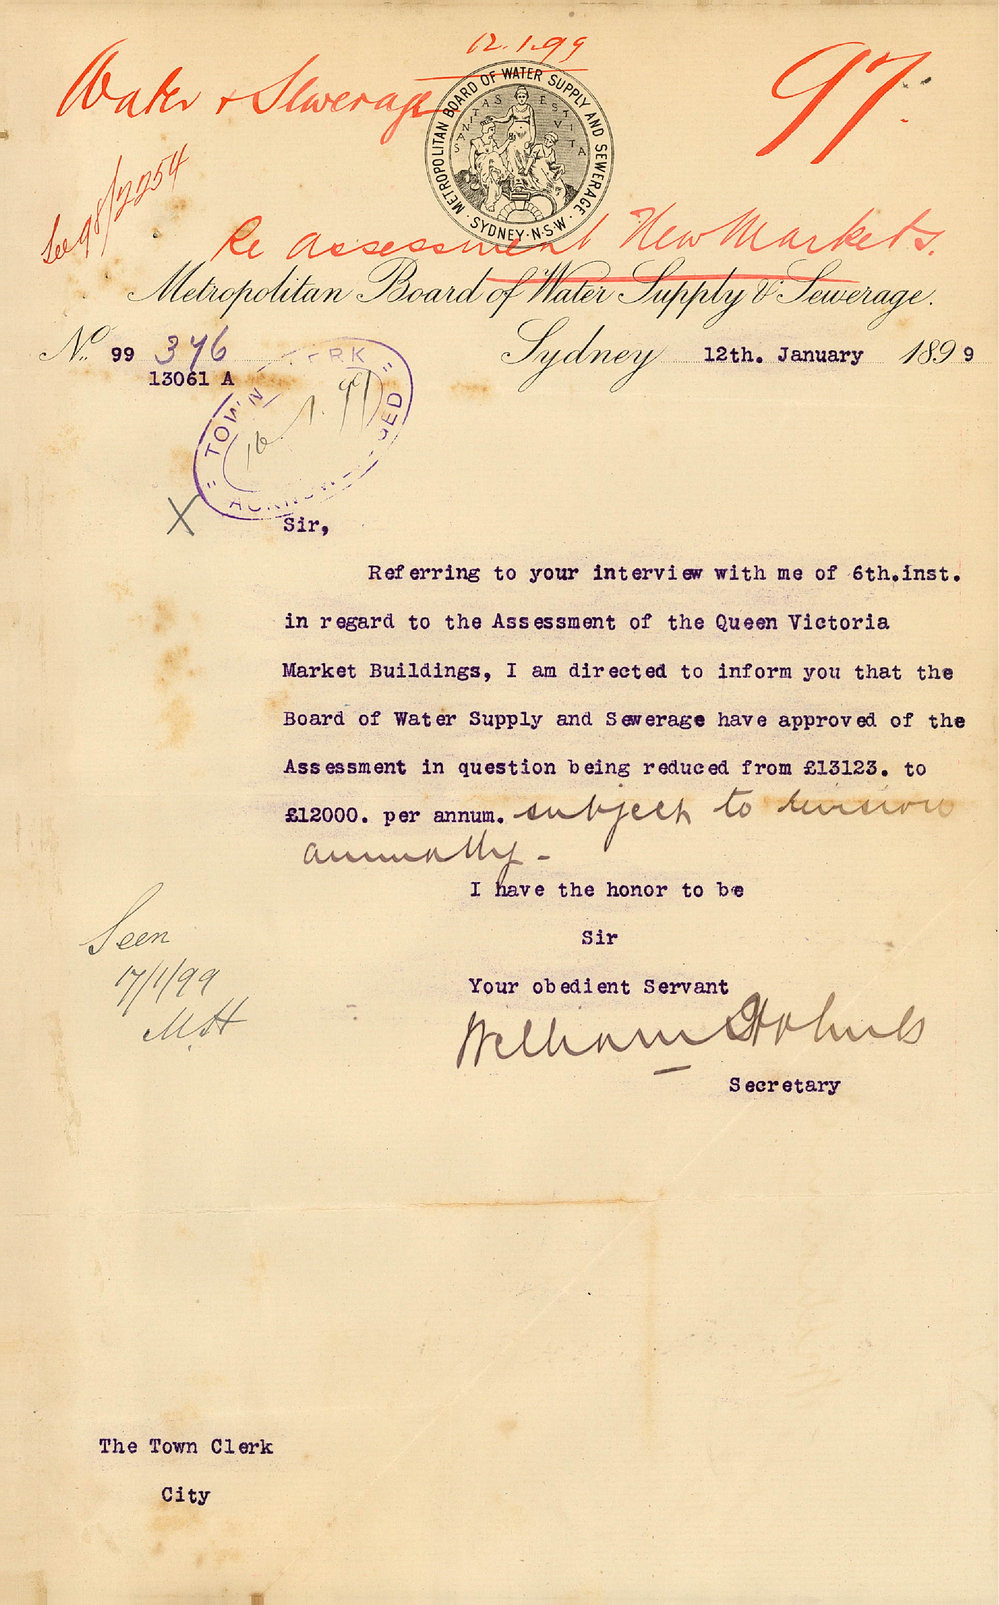 12.1.99
Water & Sewerage
97.
METROPOLITAN BOARD OF WATER SUPPLY AND SEWERAGE.
SANITAS EST VITA
· SYDNEY · N·S·W ·
See 98/2254
Re Assessment New Markets.
Metropolitan Board of Water Supply & Sewerage.
No. 99 376 Sydney 12th. January 1899
13061 A
TOWN CLERK
16.1.99
ACKNOWLEDGED
X
Sir,
Referring to your interview with me of 6th.inst.
in regard to the Assessment of the Queen Victoria
Market Buildings, I am directed to inform you that the
Board of Water Supply and Sewerage have approved of the
Assessment in question being reduced from £13123. to
£12000. per annum. subject to revision
annually -
I have the honor to be
Seen
Sir
17/1/99
Your obedient Servant
MH
William Holmes
Secretary
The Town Clerk
City